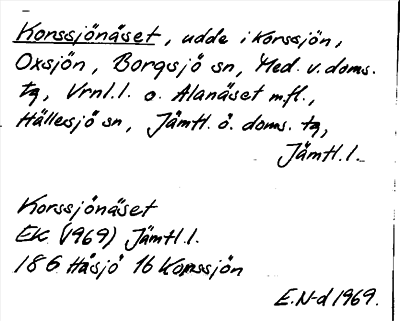 Korssjönäset, udde i Korssjön,
Oxsjön, Borgsjö sn, Med. v. doms.
tg, Vrnl.l. o. Alanäset m.fl.,
Hällesjö sn, Jämtl. ö. doms. tg,
Jämtl.l.
Korssjönäset
EK (1969) Jämtl.l.
18G Håsjö 16 Korrssjön
E.N-d 1969.